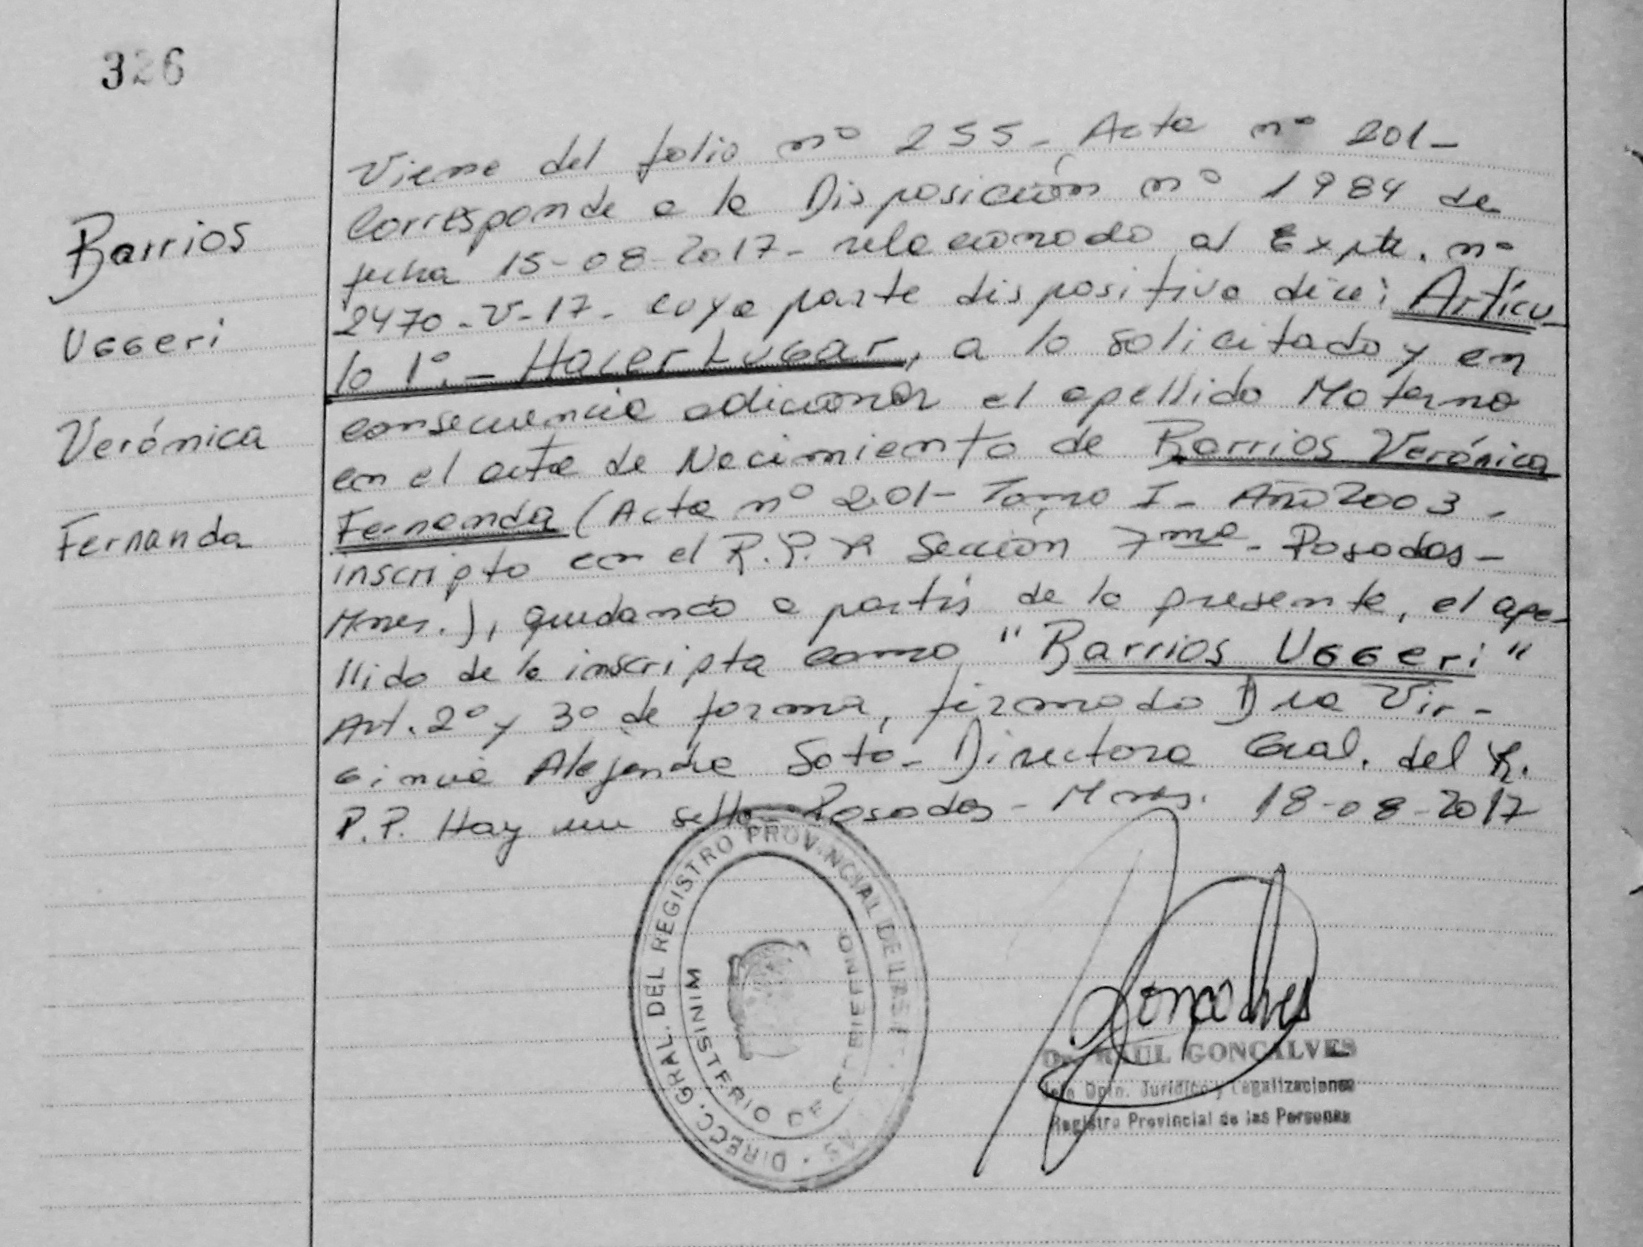 326
Barrios
Uggeri
Verónica
Fernanda
Viene del folio nº 255 - Acta nº 201 -
Corresponde a la Disposición nº 1984 de
fecha 15-08-2017 - relacionado al Expte. nº
2470-V-17- cuya parte dispositiva dice: Artícu-
lo 1º.- Hacer Lugar, a lo solicitado y en
consecuencia adicionar el apellido Materno
en el acta de Nacimiento de Barrios Verónica
Fernanda (Acta nº 201- Tomo I - Año 2003 -
inscripta en el R.P. Sección 7ma - Posadas -
Mnes.), quedando a partir de la presente, el ape-
llido de la inscripta como "Barrios Uggeri"
Art. 2º y 3º de forma, firmado Dra Vir-
ginia Alejandra Soto - Directora Gral. del R.
P.P. Hay un sello - Posadas - Mnes. 18-08-2017
DIRECC. GRAL. DEL REGISTRO PROVINCIAL DE LAS
MINISTERIO DE GOBIERNO
Goncalves
Dr. RAUL GONCALVES
Jefe Dpto. Jurídico y Legalizaciones
Registro Provincial de las Personas